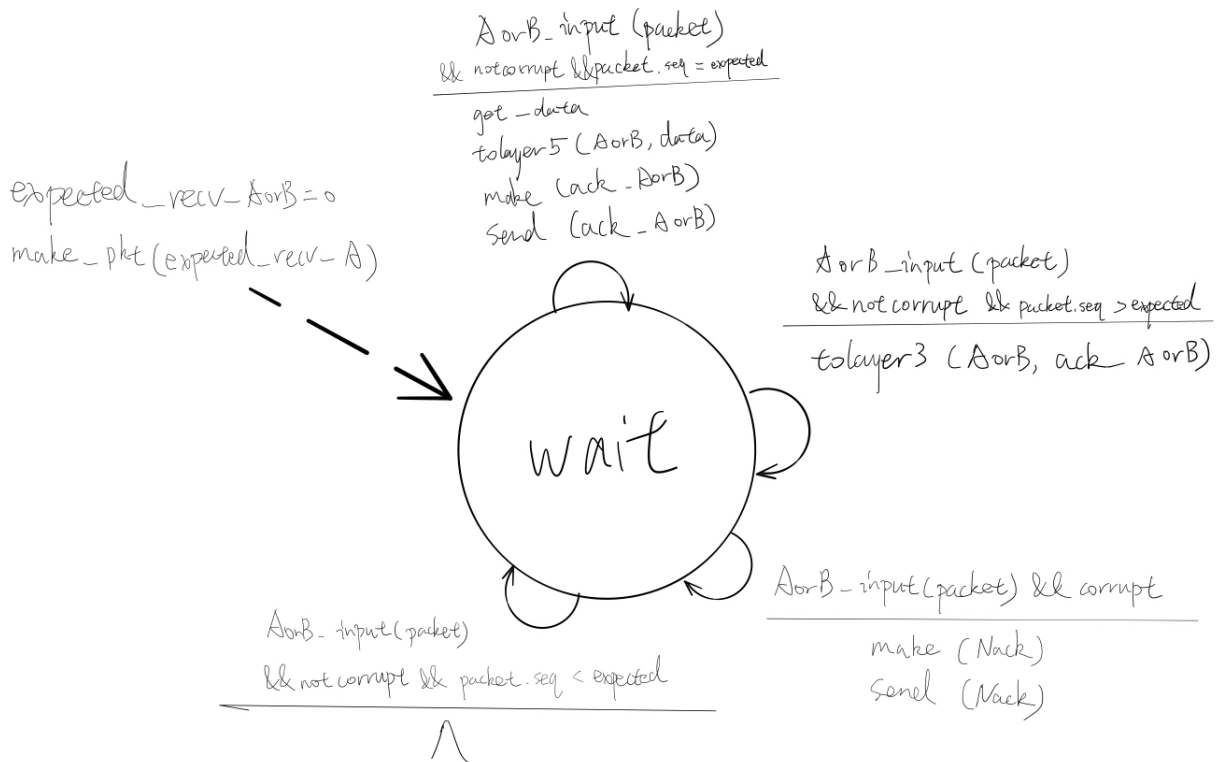 AorB_input (packet)
&& notcorrupt &&packet.seq = expected
get_data
tolayer5 (AorB, data)
make (ack_AorB)
send (ack_AorB)
expected_recv_AorB=0
make_pkt(expected_recv_A)
AorB_input (packet)
&& not corrupt && packet.seq > expected
tolayer3 (AorB, ack_AorB)
wait
AorB_input(packet) && corrupt
make (Nack)
send (Nack)
AorB_input(packet)
&& not corrupt && packet.seq < expected
Λ